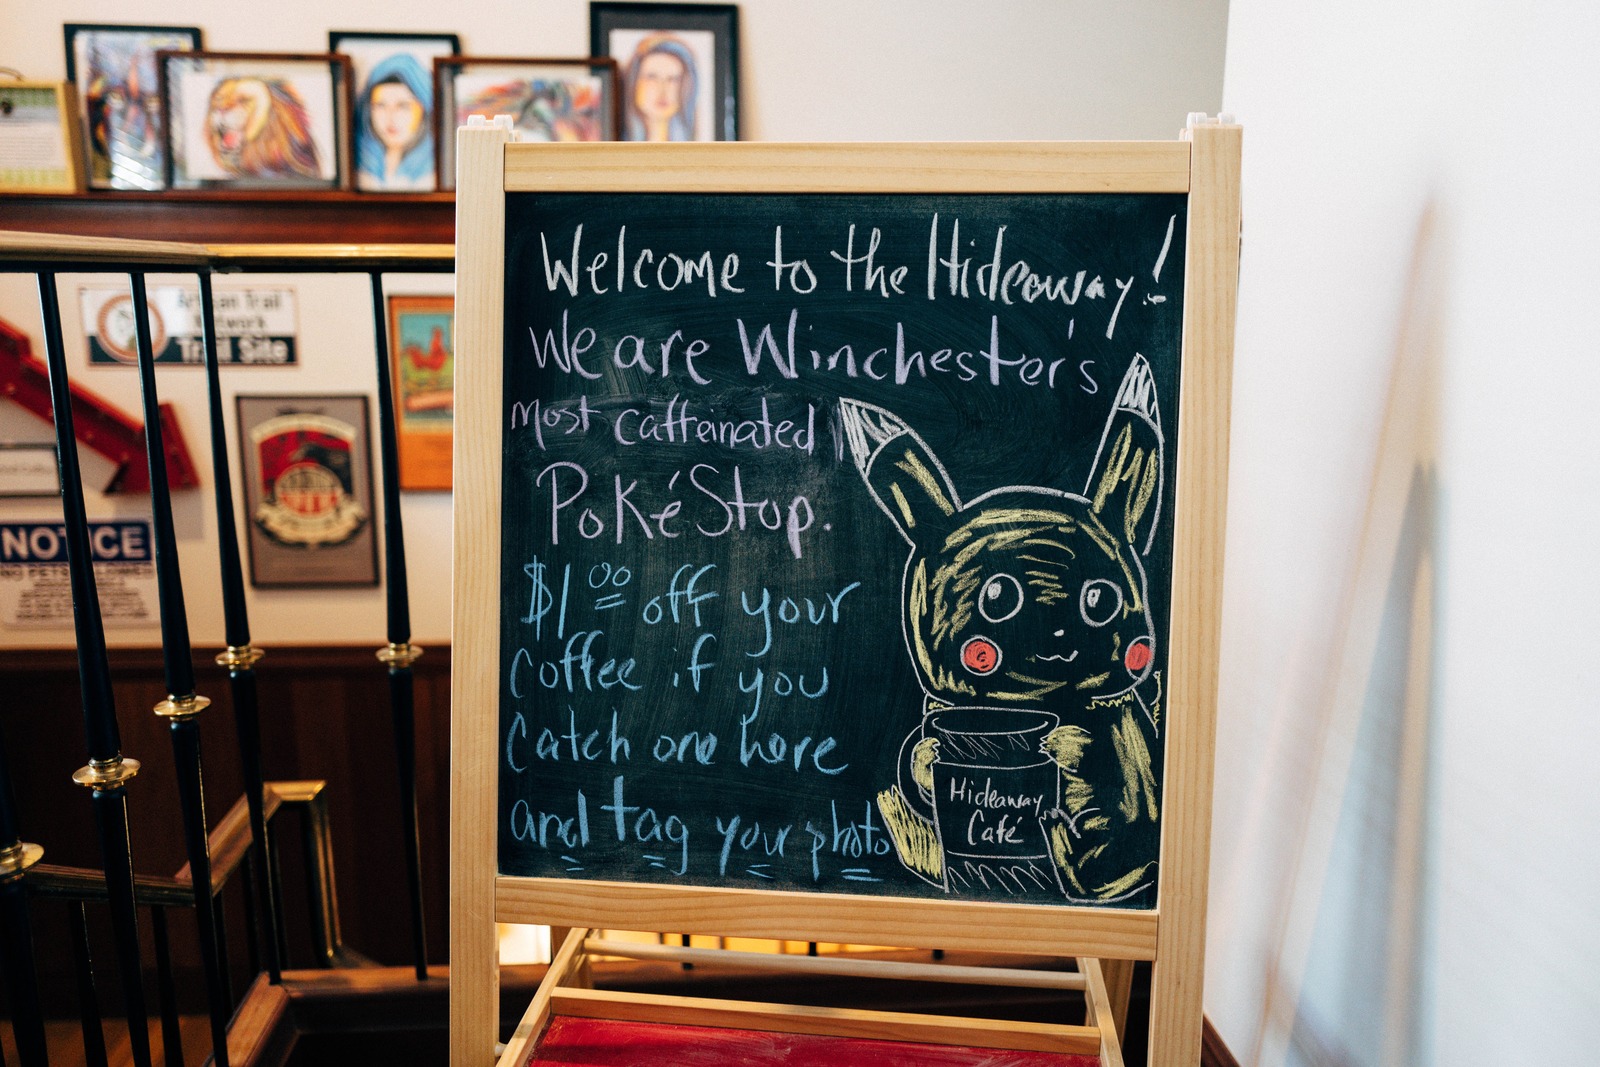 Welcome to the Hideaway!
We are Winchester's
most caffeinated
PokéStop.
$1.00 off your
coffee if you
catch one here
and tag your photo
Hideaway
Café
Trail
Network
Trail Site
NOTICE